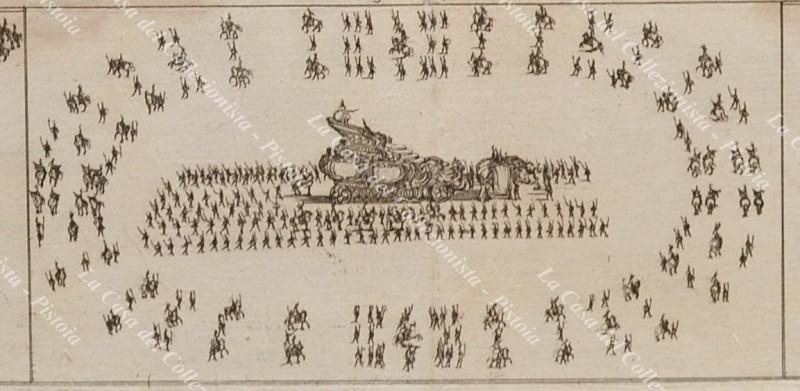 La Casa del Collezionista - Pistoia
La Casa del Collezionista - Pistoia
La Casa del Collezionista - Pistoia
La Casa del Collezionista - Pistoia